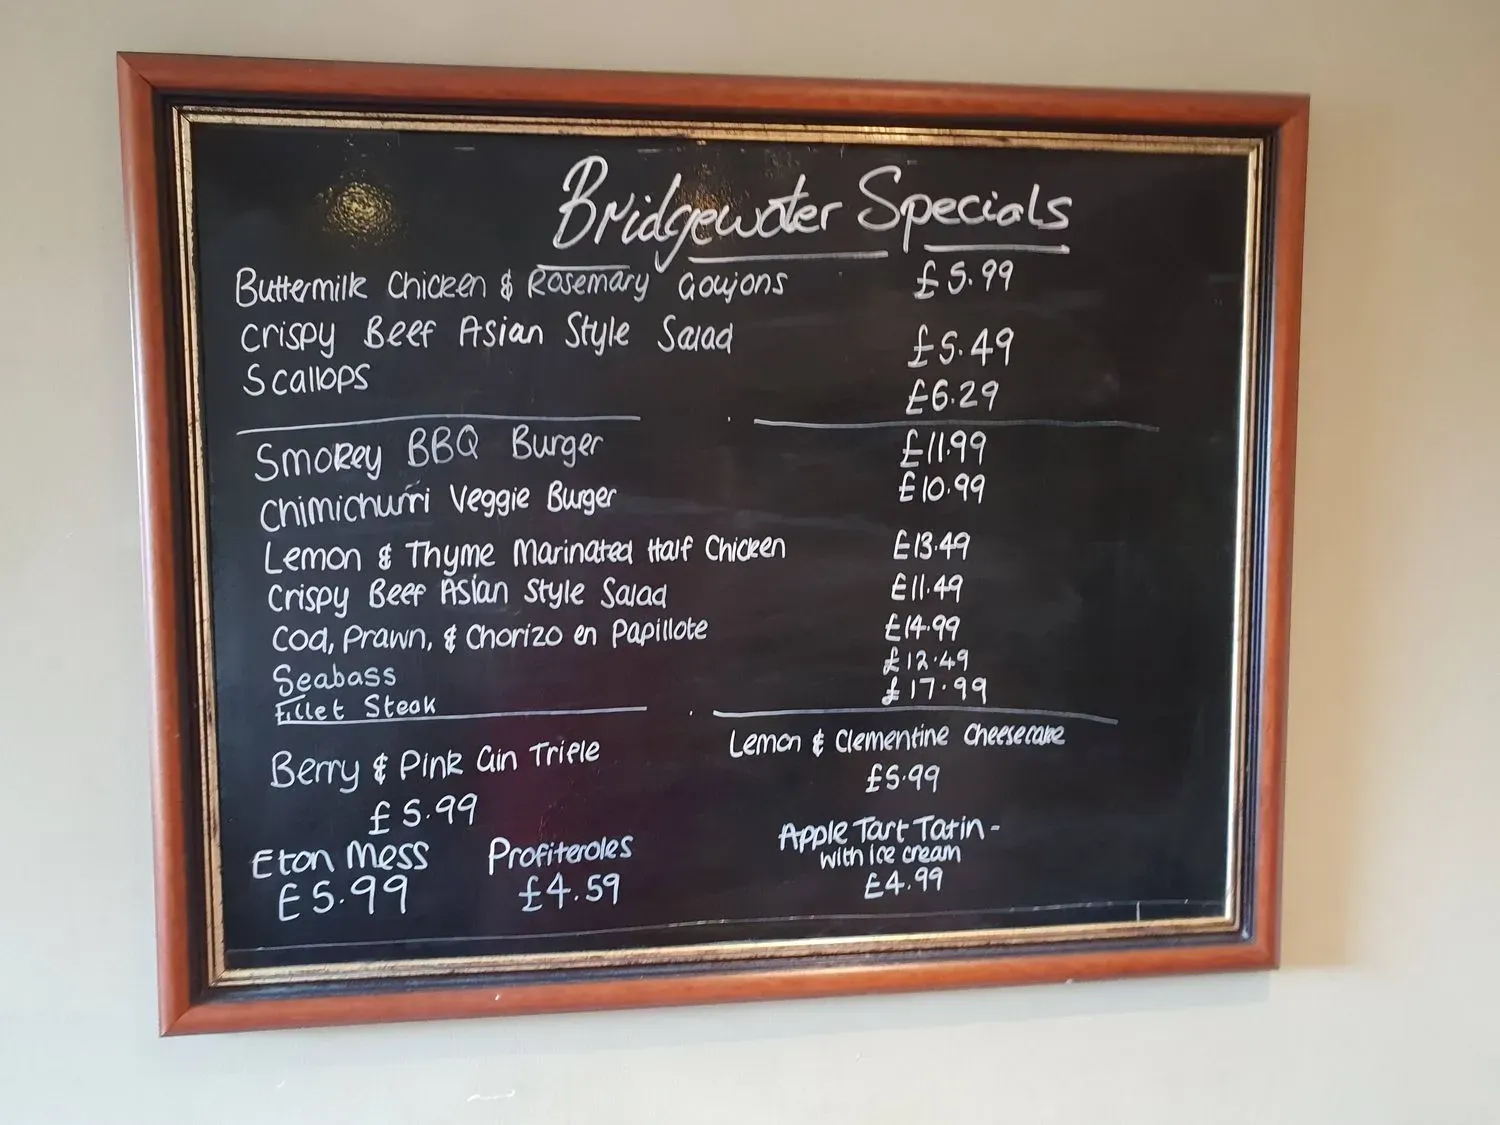 Bridgewater Specials
Buttermilk Chicken & Rosemary Goujons £5.99
Crispy Beef Asian Style Salad £5.49
Scallops £6.29
Smokey BBQ Burger £11.99
Chimichurri Veggie Burger £10.99
Lemon & Thyme Marinated Half Chicken £13.49
Crispy Beef Asian Style Salad £11.49
Cod, Prawn, & Chorizo en Papillote £14.99
Seabass £12.49
Fillet Steak £17.99
Berry & Pink Gin Trifle
£5.99
Lemon & Clementine Cheesecake
£5.99
Eton Mess
£5.99
Profiteroles
£4.59
Apple Tart Tatin -
with ice cream
£4.99